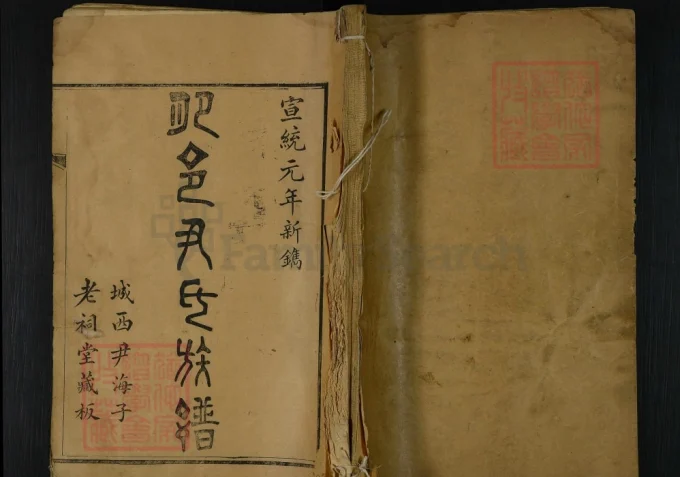 宣統元年新鐫
肥邑尹氏族譜
城西尹海子
老祠堂藏板
FamilySearch